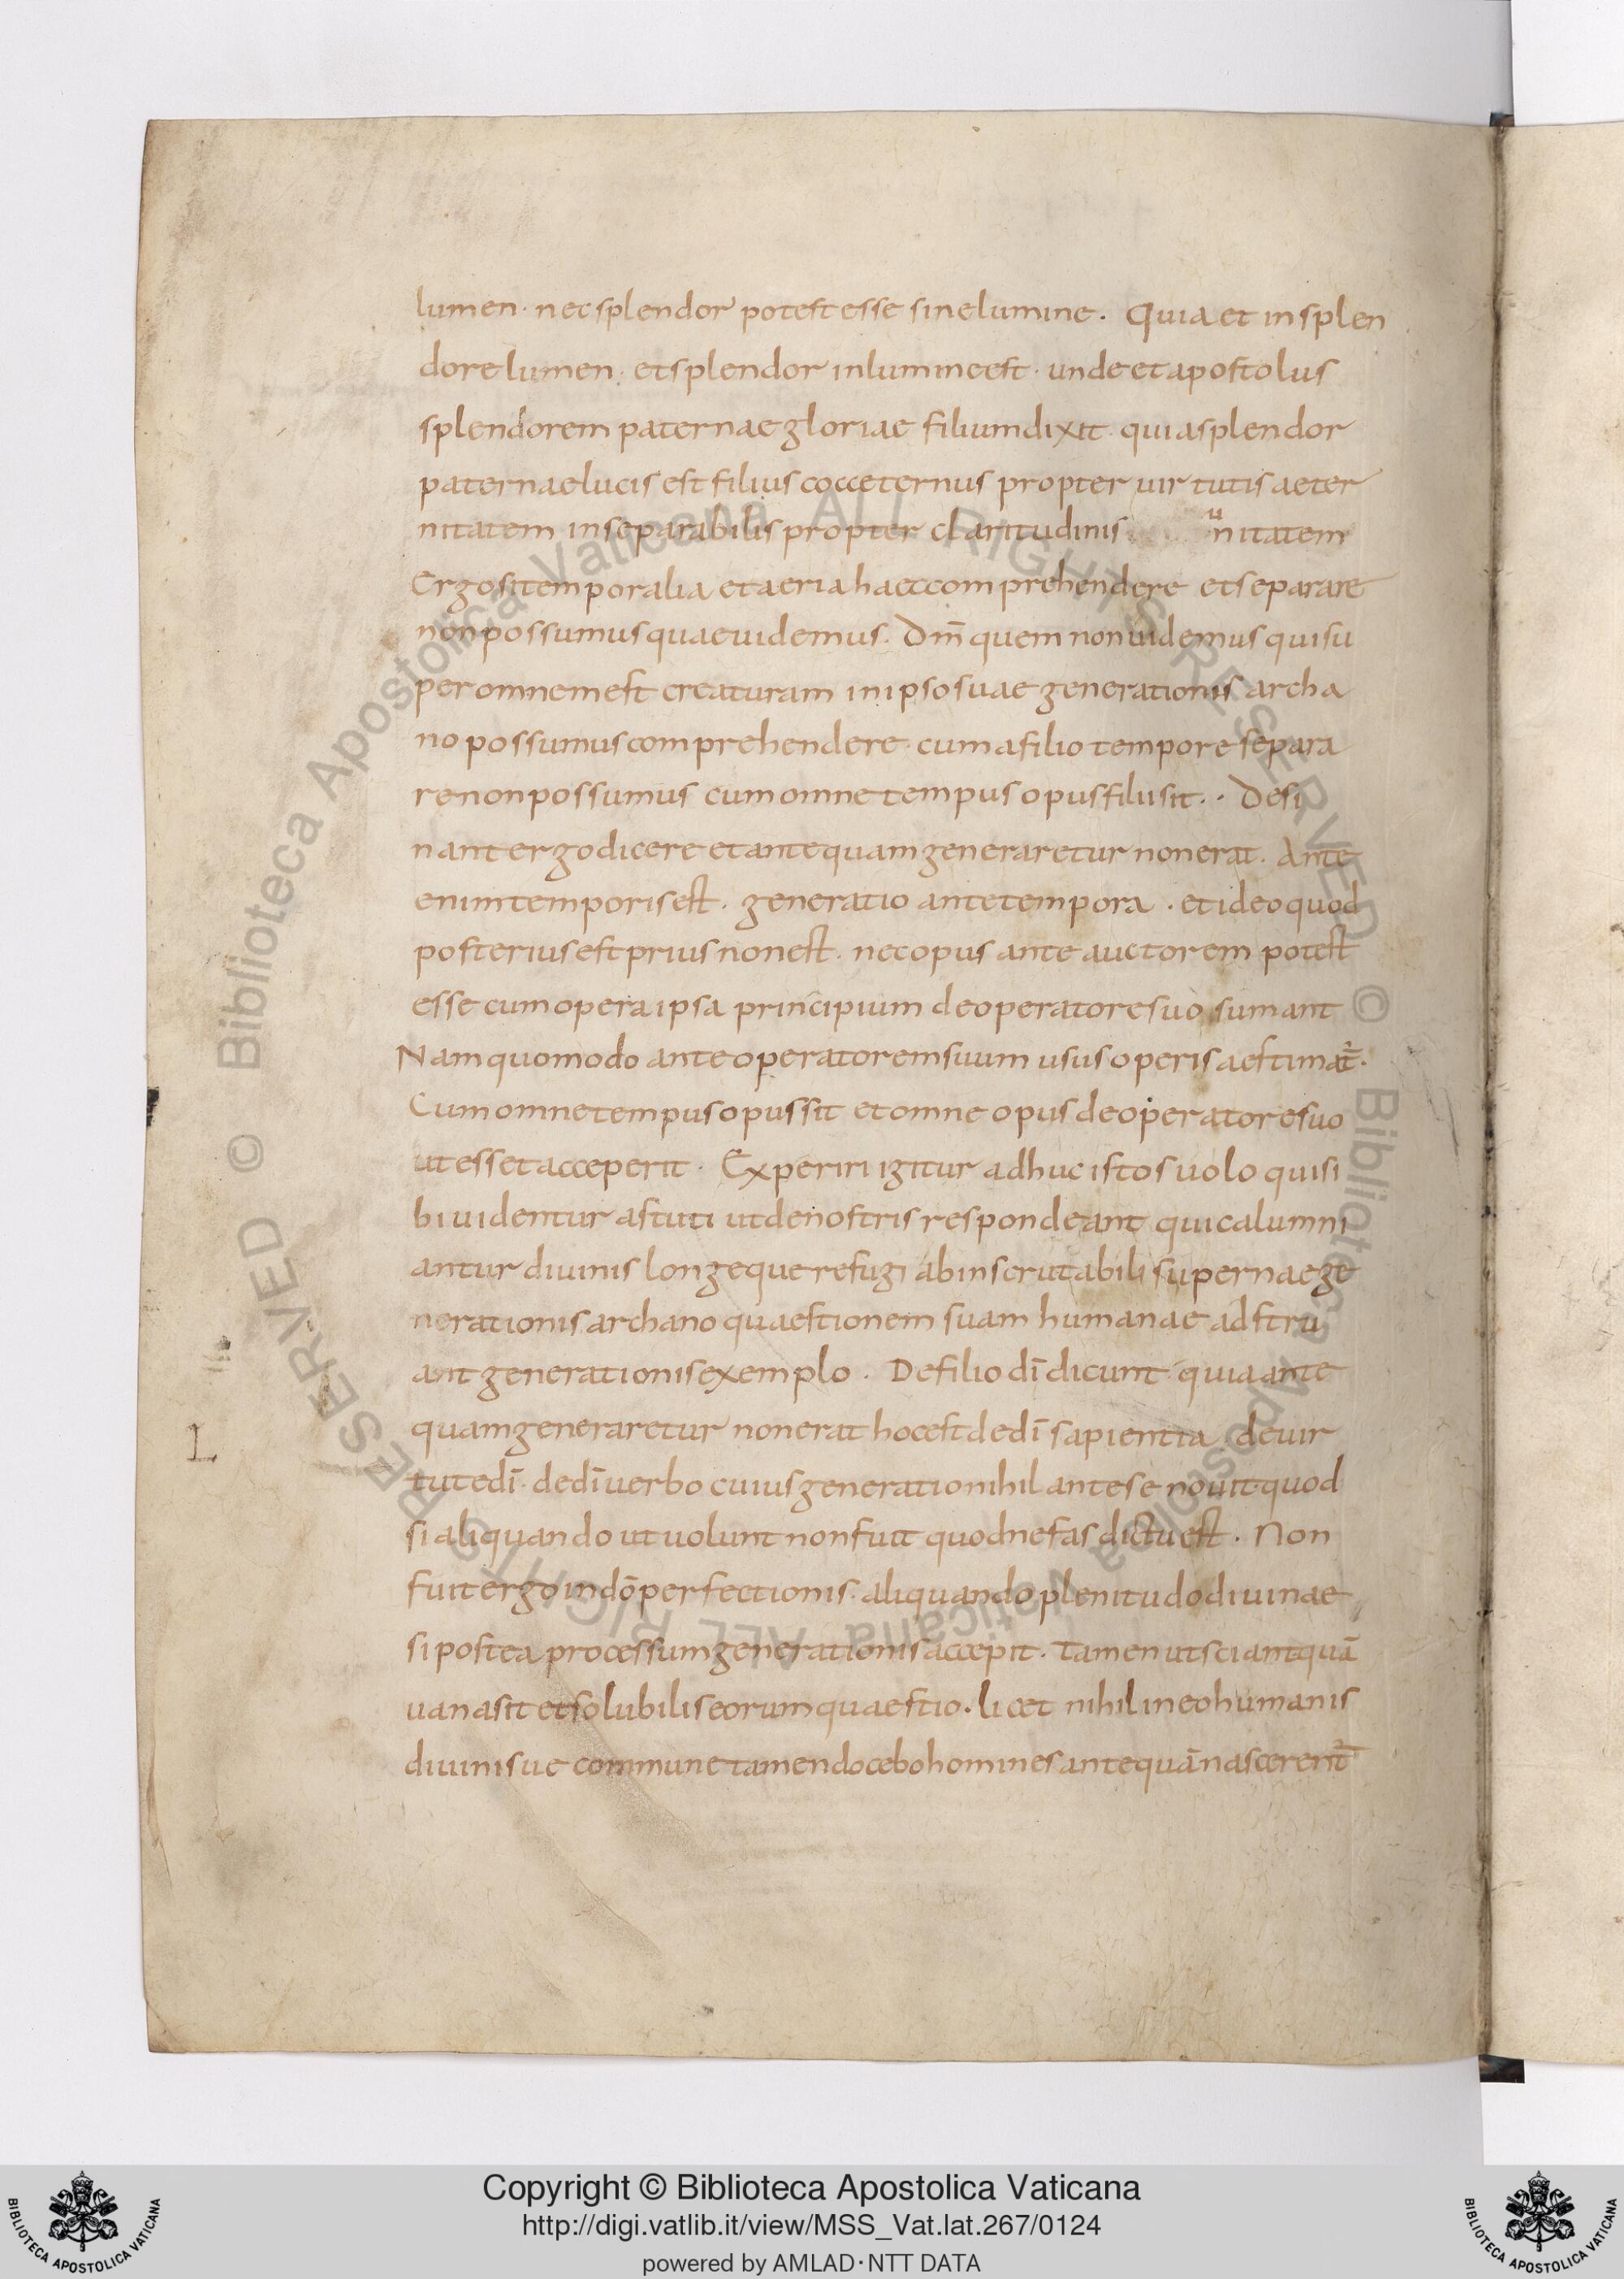 lumen · nec splendor potest esse sine lumine . Quia et in splen
dore lumen · et splendor in lumine est · unde et apostolus
splendorem paternae gloriae filium dixit · quia splendor
paternae lucis est filius cocceternus propter uirtutis aeter
nitatem inseparabilis propter claritudinis unitatem
Ergo si temporalia et aeria haec comprehendere et separare
non possumus quae uidemus . Dm̄ quem non uidemus qui su
per omnem est creaturam in ipso suae generationis archa
no possumus comprehendere · cum a filio tempore separa
re non possumus cum omne tempus opus filii sit . . Desi
nant ergo dicere et antequam generaretur non erat . Ante
enim temporis est . generatio ante tempora . et ideo quod
posterius est prius non est . nec opus ante auctorem potest
esse cum opera ipsa principium de operatore suo sumant
Nam quomodo ante operatorem suum usus operis aestimat̄ .
Cum omne tempus opus sit et omne opus de operatore suo
ut esset acceperit . Experiri igitur adhuc istos uolo qui si
bi uidentur astuti ut de nostris respondeant qui calumni
antur diuinis longeque refugi ab inscrutabili supernae ge
nerationis archano quaestionem suam humanae adstru
ant generationis exemplo . De filio dī dicunt quia ante
quam generaretur non erat hoc est de dī sapientia de uir
tute dī · de dī uerbo cuius generatio nihil ante se nouit quod
si aliquando ut uolunt non fuit quod nefas dictu est . Non
fuit ergo in dō perfectionis · aliquando plenitudo diuinae
si postea processum generationis accepit . Tamen ut sciant quā
uana sit et solubilis eorum quaestio . licet nihil in eo humanis
diuinis ue commune tamen docebo homines antequā nascerent̄
L
© Biblioteca Apostolica Vaticana ALL RIGHTS RESERVED © Biblioteca Apostolica Vaticana ALL RIGHTS RESERVED
Copyright © Biblioteca Apostolica Vaticana
http://digi.vatlib.it/view/MSS_Vat.lat.267/0124
powered by AMLAD·NTT DATA
BIBLIOTECA APOSTOLICA VATICANA
BIBLIOTECA APOSTOLICA VATICANA